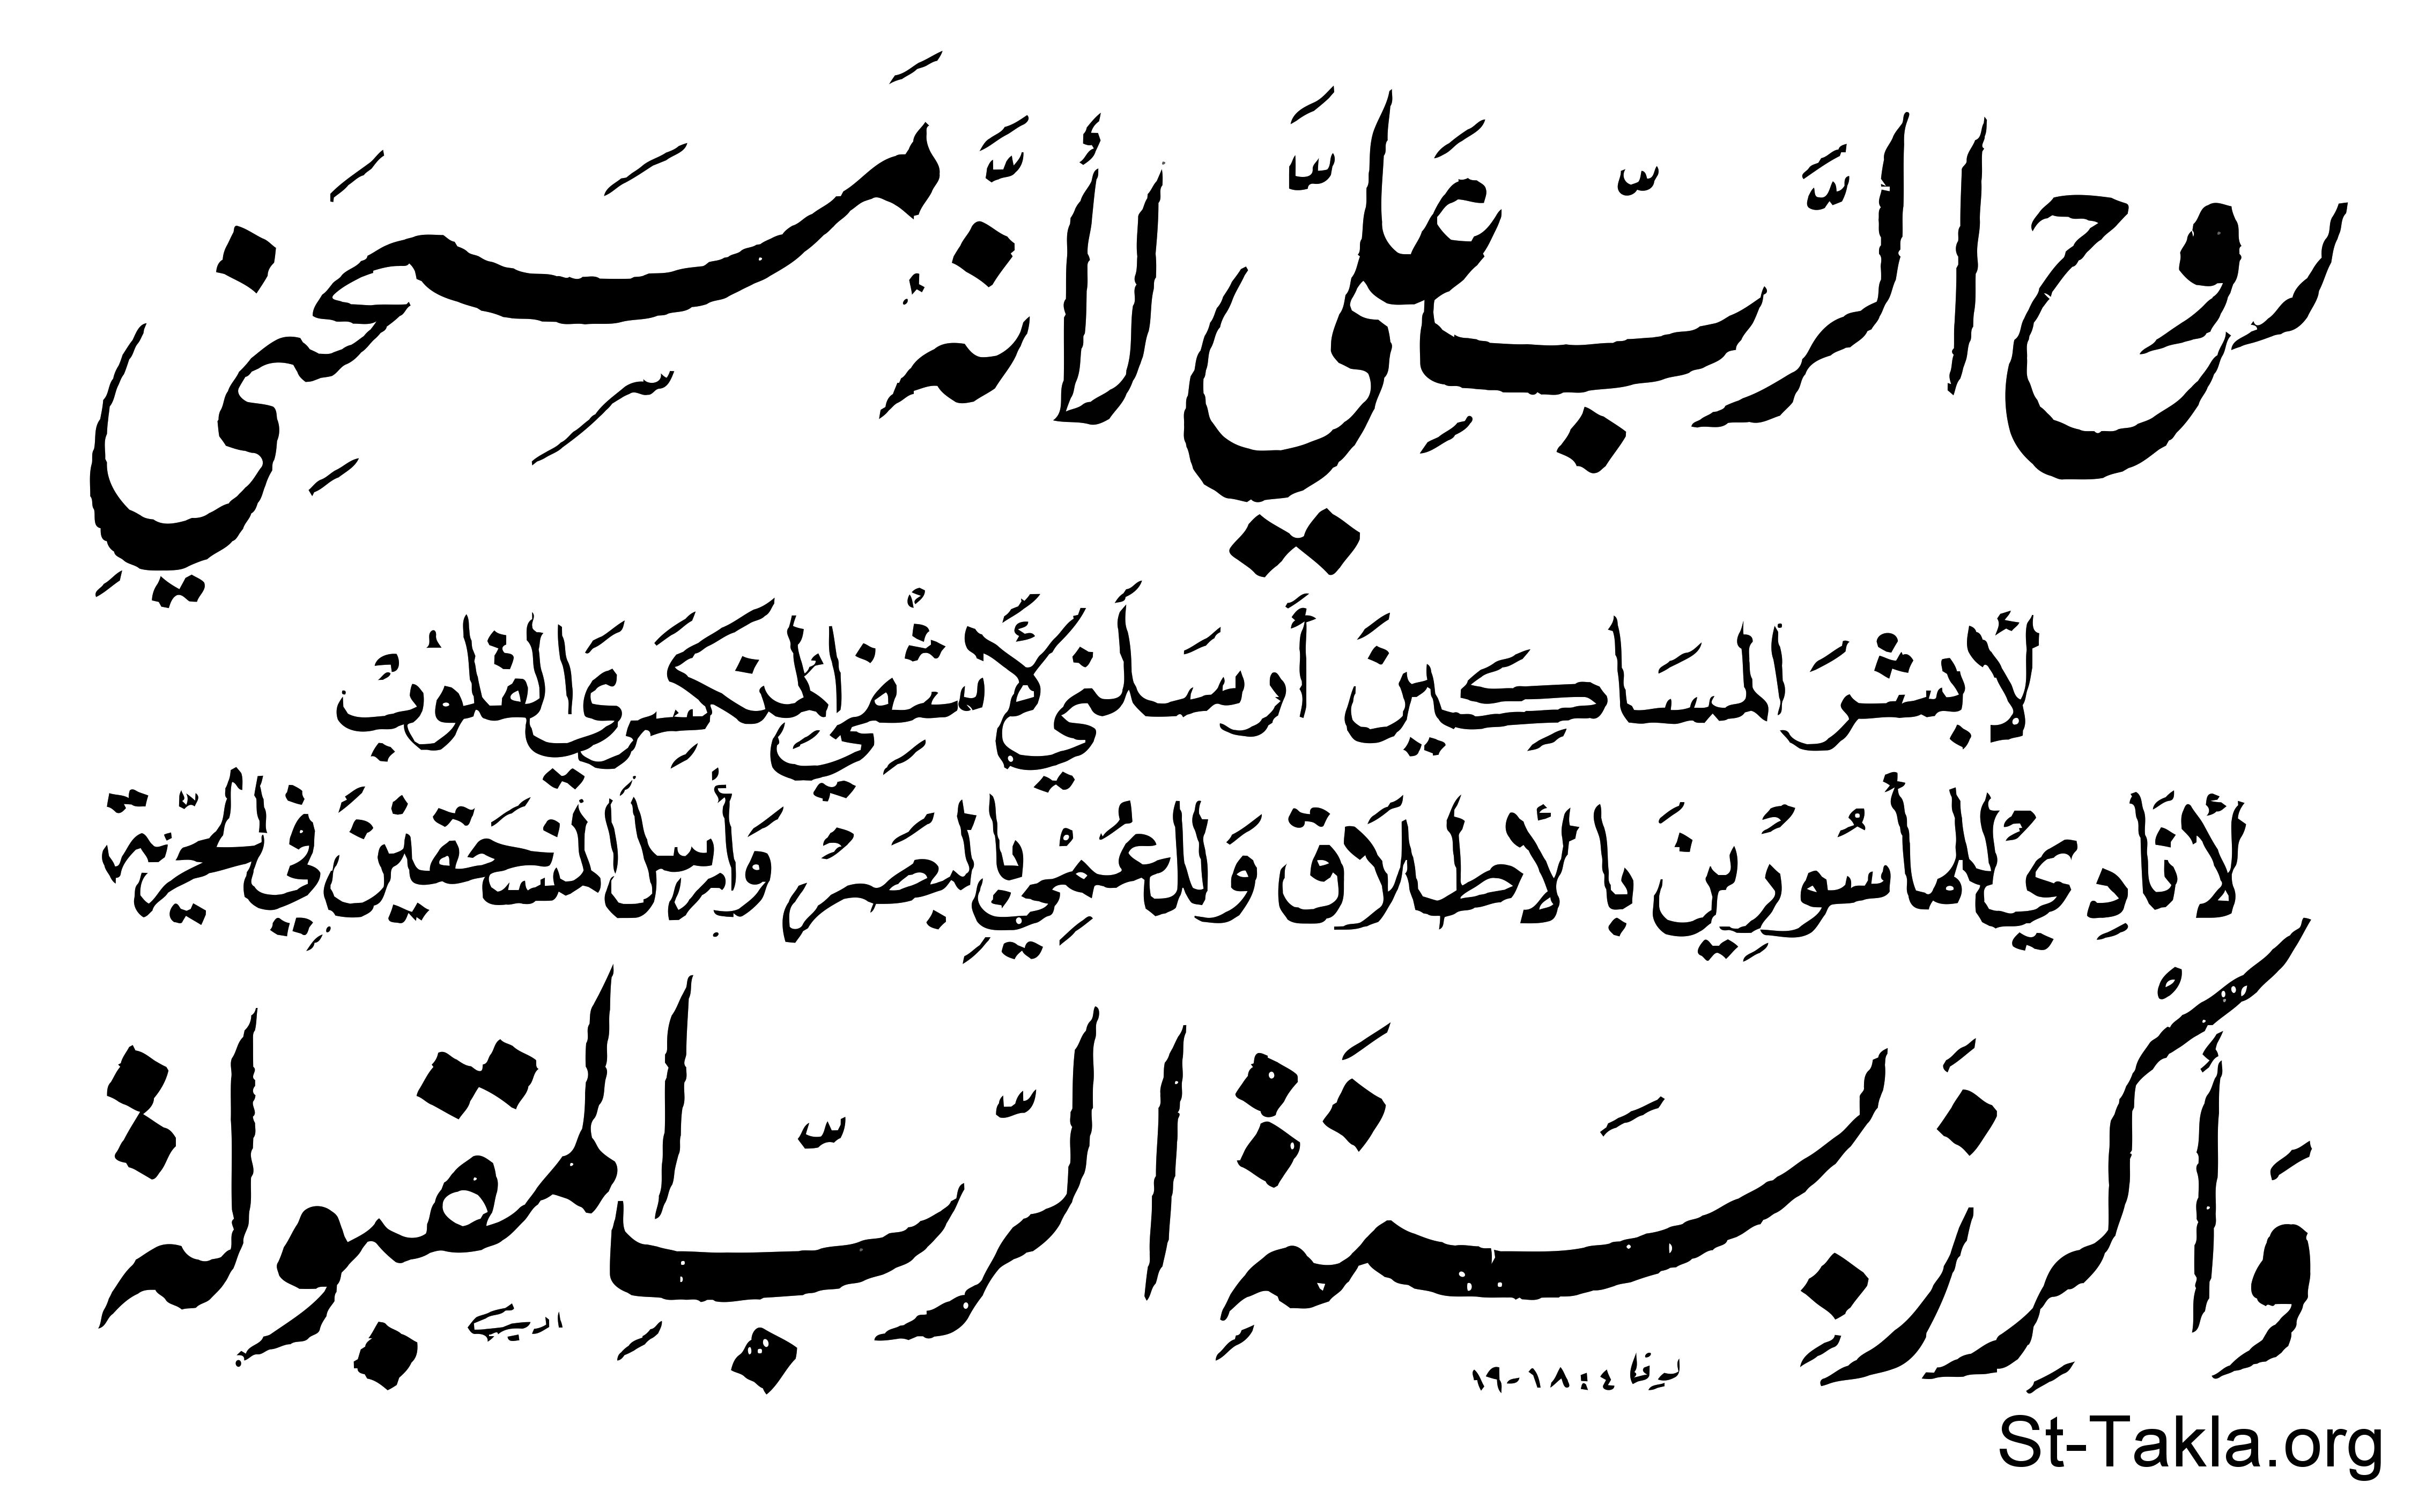 روح الرَّبّ عَلَيَّ لأنَّهُ مَسَحَنِي
لِأُبَشِّرَ المساكِينَ أَرْسَلَنِي لِأَشْفِيَ المُنكَسِرِي القُلُوبِ
لِأُنَادِيَ لِلمَأْسُورِينَ بِالإِطْلَاقِ وَلِلعُمْيِ بِالبَصَرِ وَأُرْسِلَ المُنسَحِقِينَ فِي الحُرِّيَّةِ
وَأَكْرِزَ بِسَنَةِ الرَّبِّ المقبولة
لوقا ٤: ١٨-١٩
St-Takla.org